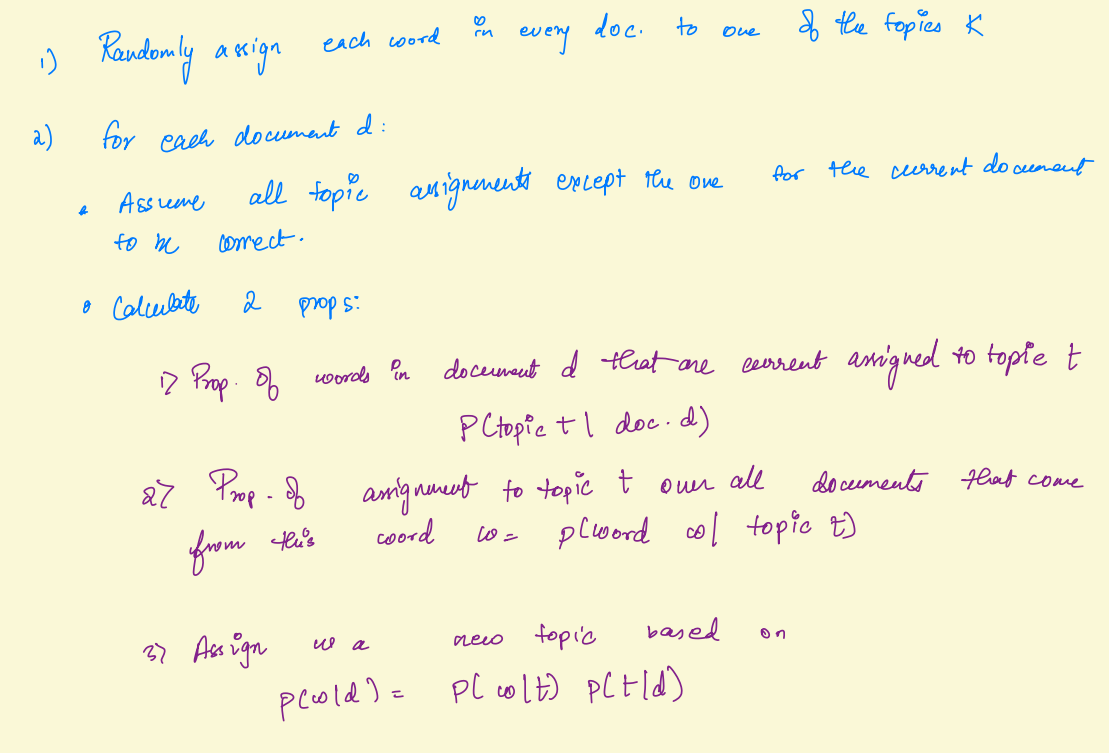 1) Randomly assign each word in every doc. to one of the topics K
2) for each document d:
• Assume all topic assignments except the one for the current document
to be correct.
• Calculate 2 props:
1) Prop. of words in document d that are current assigned to topic t
P(topic t | doc. d)
2) Prop. of assignment to topic t over all documents that come
from this word w = p(word w | topic t)
3) Assign w a new topic based on
p(w|d) = P(w|t) p(t|d)